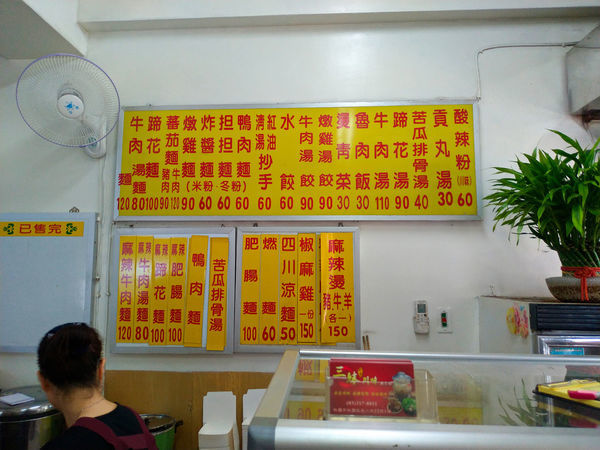 牛肉湯麵 麵 120 80
蹄花麵 100
蕃茄麵 豬肉 90 牛肉 120
燉雞麵 90
炸醬麵 60
担担麵 60
鴨肉麵 60
(米粉·冬粉)
清湯 紅油 抄手 60
水餃 60
牛肉湯餃 90
燉雞湯餃 90
燙青菜 30
魯肉飯 30
牛肉湯 110
蹄花湯 90
苦瓜排骨湯 40
貢丸湯 30
酸辣粉(川味) 60
已售完
麻辣牛肉麵 120
麻辣牛肉湯麵 80
麻辣蹄花麵 100
麻辣肥腸麵 100
鴨肉
苦瓜排骨湯
肥腸麵 100
燃麵 60
四川涼麵 50
椒麻雞 一份 150
麻辣燙 豬牛羊 (各一) 150
三味